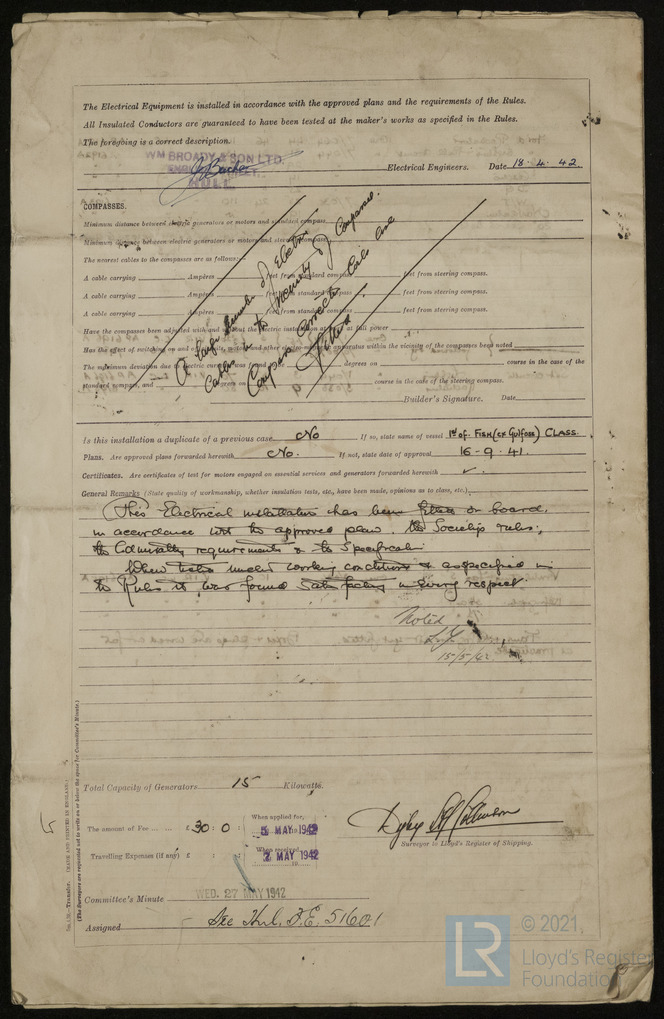 The Electrical Equipment is installed in accordance with the approved plans and the requirements of the Rules.
All Insulated Conductors are guaranteed to have been tested at the maker's works as specified in the Rules.
The foregoing is a correct description.
WM BROADY & SON LTD.
HULL
Electrical Engineers. Date 18.4.42.
COMPASSES.
Minimum distance between electric generators or motors and standard compass
Minimum distance between electric generators or motors and steering compass
The nearest cables to the compasses are as follows:—
A cable carrying Ampères feet from standard compass feet from steering compass.
A cable carrying Ampères feet from standard compass feet from steering compass.
A cable carrying Ampères feet from standard compass feet from steering compass.
Have the compasses been adjusted with and without the electric installation at work at full power
Has the effect of switching on and off circuits, motors and other electro-magnetic apparatus within the vicinity of the compasses been noted
The maximum deviation due to electric currents was found to be degrees on course in the case of the
standard compass, and degrees on course in the case of the steering compass.
A large number of Electric
Cables in the vicinity of Compasses.
Compass Corrector Coils are
fitted
Builder's Signature. Date
Is this installation a duplicate of a previous case No If so, state name of vessel 1st of FISH (ex Gulfoss) CLASS.
Plans. Are approved plans forwarded herewith No. If not, state date of approval 16-9-41.
Certificates. Are certificates of test for motors engaged on essential services and generators forwarded herewith ✓.
General Remarks (State quality of workmanship, whether insulation tests, etc., have been made, opinions as to class, etc.)
This Electrical installation has been fitted on board,
in accordance with the approved plan, the Society's rules,
the Admiralty requirements & the Specification
When tested under working conditions & as specified in
the Rules it was found satisfactory in every respect.
Noted
15/5/42
Total Capacity of Generators 15 Kilowatts.
15
The amount of Fee £ 30 : 0 : When applied for, 5 MAY 1942
Travelling Expenses (if any) £ : : When received, 2 MAY 1942
Surveyor to Lloyd's Register of Shipping.
Committee's Minute WED. 27 MAY 1942
Assigned See Hul. F.E. 51601
Transfer. (MADE AND PRINTED IN ENGLAND.)
(The Surveyors are requested not to write on or below the space for Committee's Minute.)
LR © 2021
Lloyd's Register
Foundation